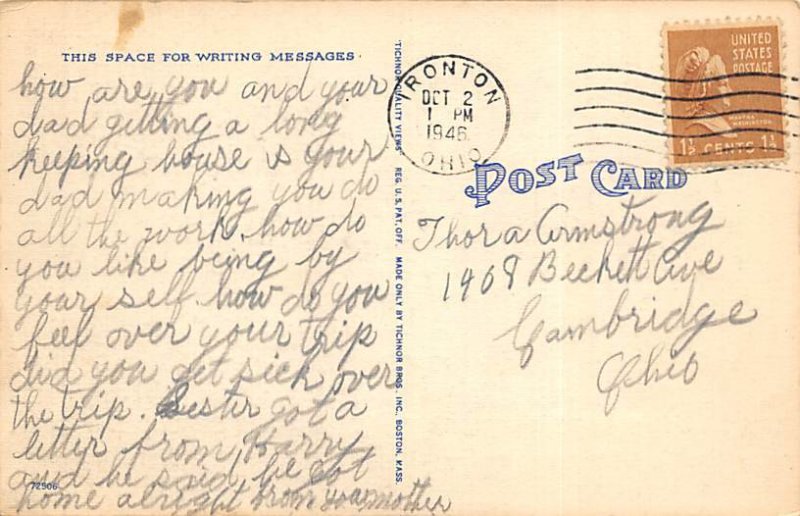 THIS SPACE FOR WRITING MESSAGES
how are you and your
dad getting a long
keeping house is your
dad making you do
all the work. how do
you like being by
your self. how do you
feel over your trip
did you get sick over
the trip. Lester got a
letter from Harry
and he said he got
home alright from your mother
72906
"TICHNOR QUALITY VIEWS" REG. U.S. PAT. OFF. MADE ONLY BY TICHNOR BROS. INC., BOSTON, MASS.
IRONTON
OCT 2
1 PM
1946
OHIO
UNITED
STATES
POSTAGE
MARTHA
WASHINGTON
1½ CENTS 1½
POST CARD
Thora Armstrong
1408 Beckett Ave
Cambridge
Ohio